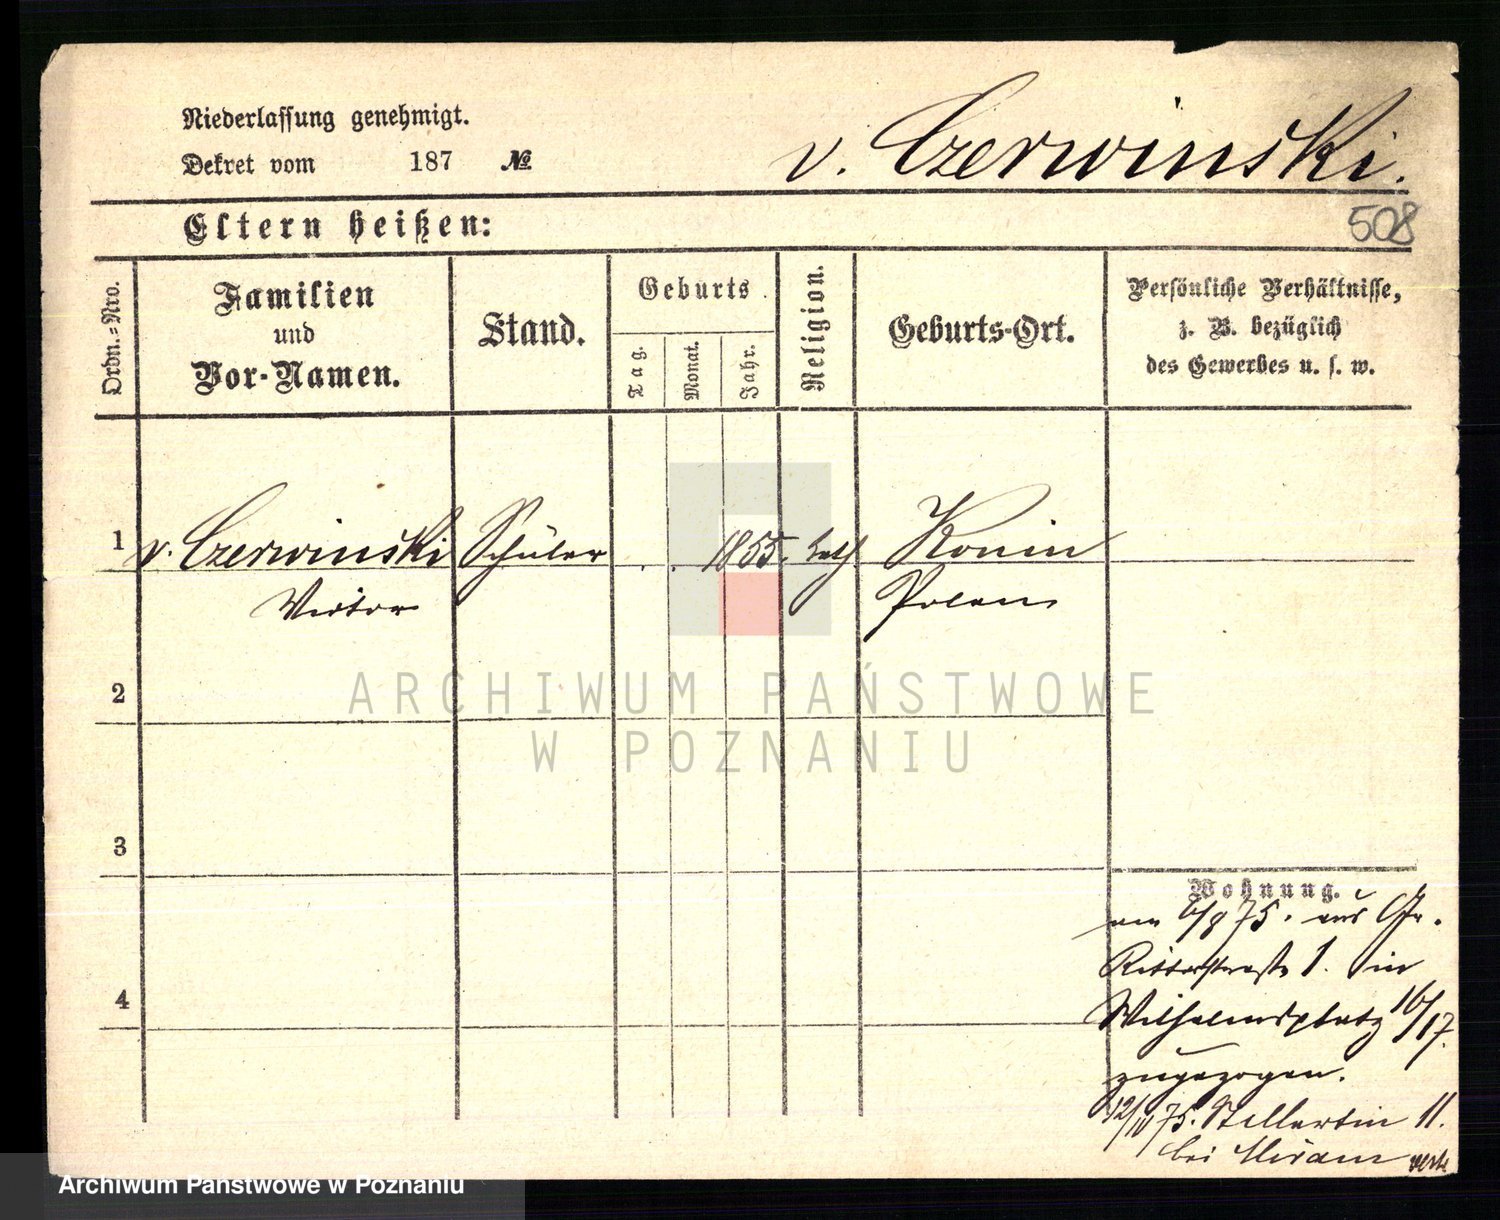 Niederlassung genehmigt.
Dekret vom 187 №
v. Czerwinski.
Eltern heißen:
508
Ordn.=Nro.
Familien
und
Vor-Namen.
Stand.
Geburts
Tag.
Monat.
Jahr.
Religion.
Geburts-Ort.
Persönliche Verhältnisse,
z. B. bezüglich
des Gewerbes u. s. w.
1 v. Czerwinski Schüler . . 1855. kath Konin
Victor Polen
2
ARCHIWUM PAŃSTWOWE
W POZNANIU
3
Wohnung.
am 6/9 75. aus Gr.
Ritterstraße 1. in
4
Wilhelmsplatz 16/17.
zugezogen.
12/IV 75. 11.
bei
Archiwum Państwowe w Poznaniu